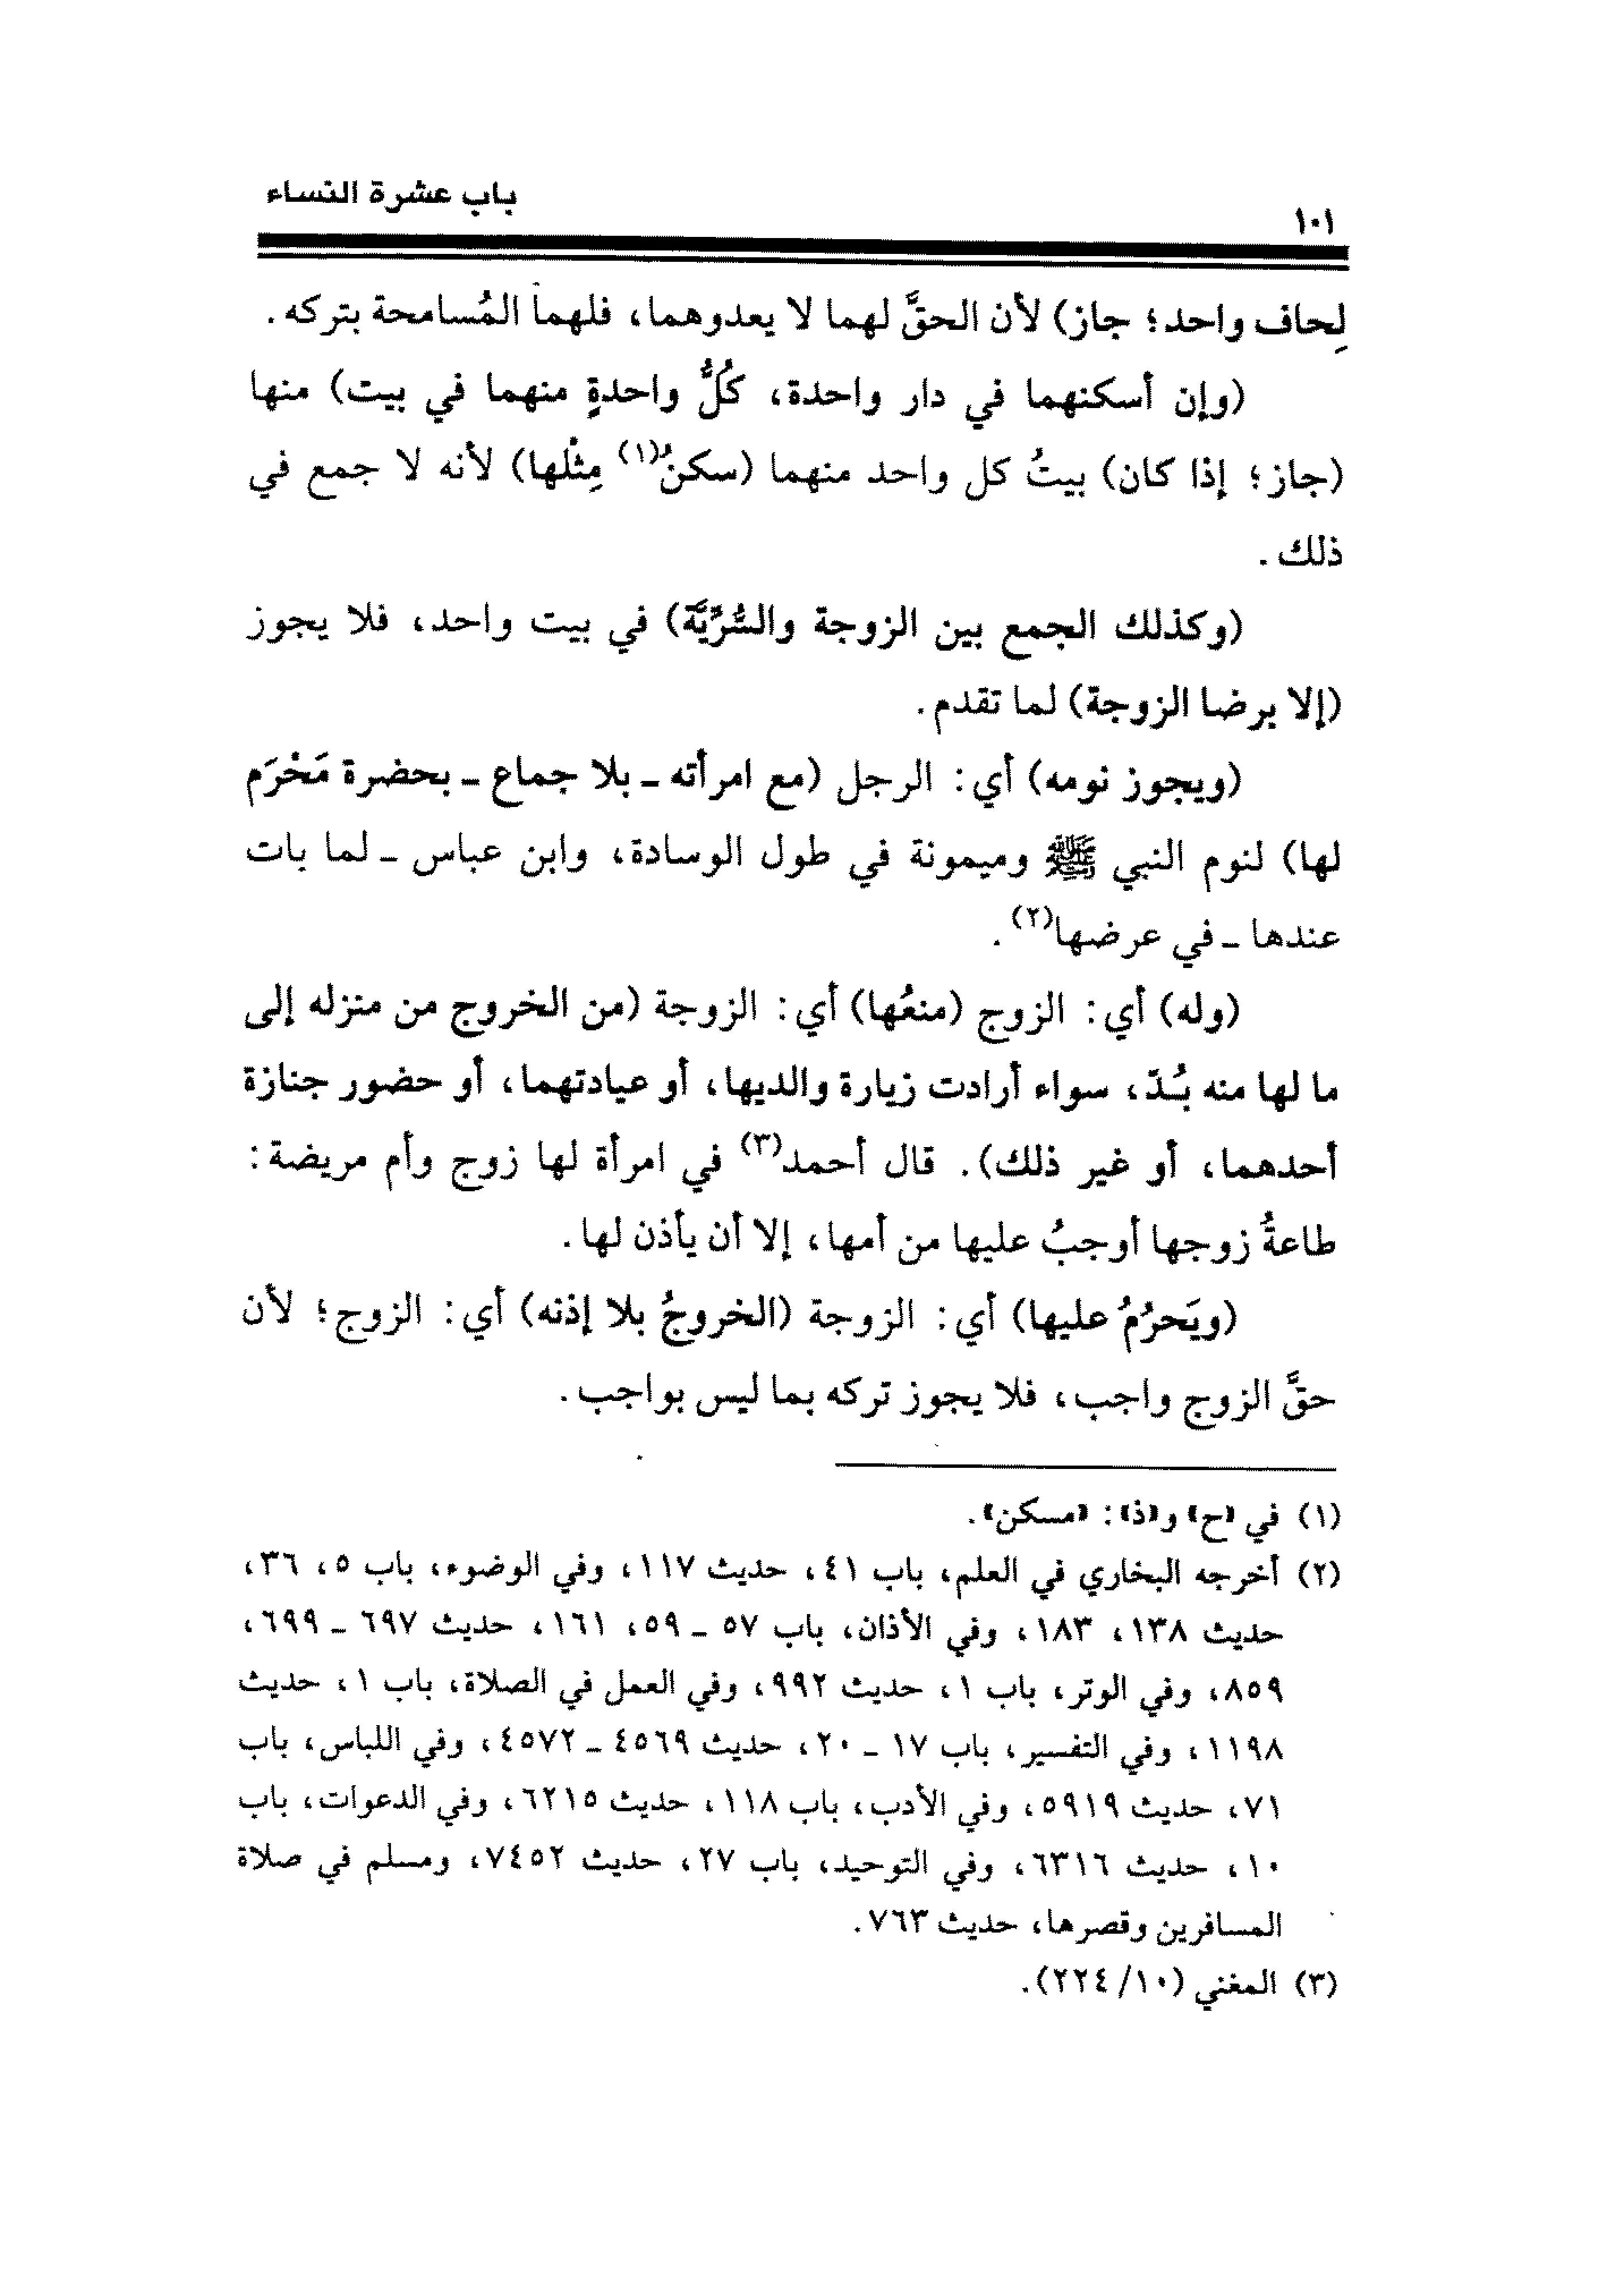 باب عشرة النساء
١٠١
لِحاف واحد؛ جاز) لأن الحقَّ لهما لا يعدوهما، فلهما المُسامحة بتركه.
(وإن أسكنهما في دار واحدة، كُلُّ واحدةٍ منهما في بيت) منها
(جاز؛ إذا كان) بيتُ كل واحد منهما (سكنُ(١) مِثْلها) لأنه لا جمع في
ذلك.
(وكذلك الجمع بين الزوجة والسُّرِّيَّة) في بيت واحد، فلا يجوز
(إلا برضا الزوجة) لما تقدم.
(ويجوز نومه) أي: الرجل (مع امرأته ـ بلا جماع ـ بحضرة مَحْرَم
لها) لنوم النبي ﷺ وميمونة في طول الوسادة، وابن عباس ـ لما بات
عندها ـ في عرضها(٢).
(وله) أي: الزوج (منعُها) أي: الزوجة (من الخروج من منزله إلى
ما لها منه بُـدّ، سواء أرادت زيارة والديها، أو عيادتهما، أو حضور جنازة
أحدهما، أو غير ذلك). قال أحمد(٣) في امرأة لها زوج وأم مريضة:
طاعةُ زوجها أوجبُ عليها من أمها، إلا أن يأذن لها.
(ويَحرُمُ عليها) أي: الزوجة (الخروجُ بلا إذنه) أي: الزوج؛ لأن
حقَّ الزوج واجب، فلا يجوز تركه بما ليس بواجب.
(١) في «ح» و«ذ»: «مسكن».
(٢) أخرجه البخاري في العلم، باب ٤١، حديث ١١٧، وفي الوضوء، باب ٥، ٣٦،
حديث ١٣٨، ١٨٣، وفي الأذان، باب ٥٧ ـ ٥٩، ١٦١، حديث ٦٩٧ ـ ٦٩٩،
٨٥٩، وفي الوتر، باب ١، حديث ٩٩٢، وفي العمل في الصلاة، باب ١، حديث
١١٩٨، وفي التفسير، باب ١٧ ـ ٢٠، حديث ٤٥٦٩ ـ ٤٥٧٢، وفي اللباس، باب
٧١، حديث ٥٩١٩، وفي الأدب، باب ١١٨، حديث ٦٢١٥، وفي الدعوات، باب
١٠، حديث ٦٣١٦، وفي التوحيد، باب ٢٧، حديث ٧٤٥٢، ومسلم في صلاة
المسافرين وقصرها، حديث ٧٦٣.
(٣) المغني (١٠/ ٢٢٤).